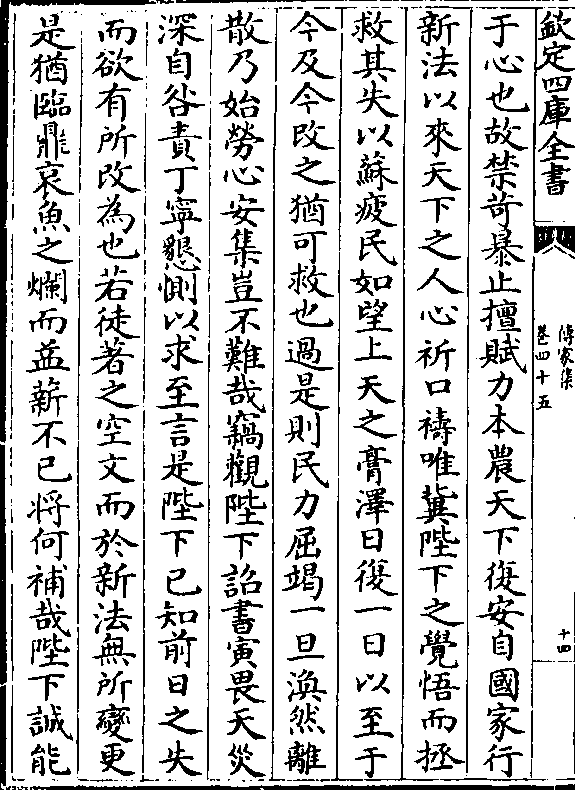 欽定四庫全書
傳家集
卷四十五
十四
于心也故禁苛暴止擅賦力本農天下復安自國家行
新法以來天下之人心祈口禱唯冀陛下之覺悟而拯
救其失以蘇疲民如望上天之膏澤日復一日以至于
今及今改之猶可救也過是則民力屈竭一旦渙然離
散乃始勞心安集豈不難哉竊觀陛下詔書寅畏天災
深自咎責丁寧懇惻以求至言是陛下已知前日之失
而欲有所改為也若徒著之空文而於新法無所變更
是猶臨鼎哀魚之爛而益薪不已將何補哉陛下誠能